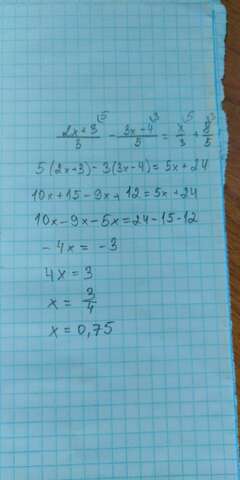 (2x+3)/3 ⁵⁾ - (3x-4)/5 ³⁾ = x/3 ⁵⁾ + 8/5 ³⁾
5(2x+3)-3(3x-4)=5x+24
10x+15-9x+12=5x+24
10x-9x-5x=24-15-12
-4x=-3
4x=3
x=3/4
x=0,75